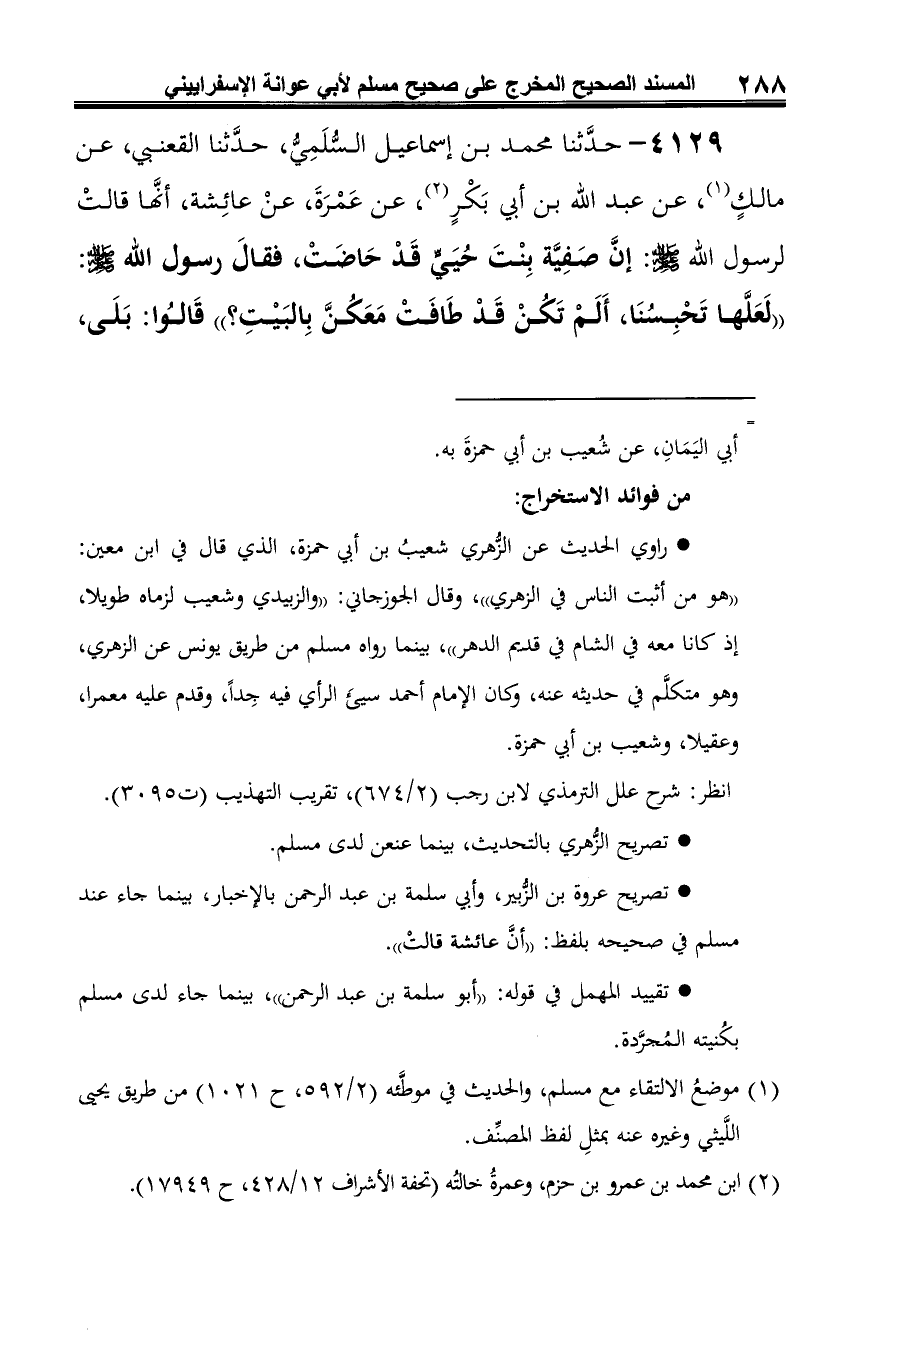 ٢٨٨ المسند الصحيح المخرج على صحيح مسلم لأبي عوانة الإسفراييني
٤١٢٩- حدَّثنا محمد بن إسماعيل السُّلَمِيُّ، حدَّثنا القعنبي، عن
مالكٍ(١)، عن عبد الله بن أبي بَكْرٍ(٢)، عن عَمْرَةَ، عنْ عائِشة، أنَّها قالتْ
لرسول الله ﷺ: إنَّ صَفِيَّة بِنْتَ حُيَيٍّ قَدْ حَاضَتْ، فقالَ رسول الله ﷺ:
((لَعَلَّها تَحْبِسُنَا، أَلَمْ تَكُنْ قَدْ طَافَتْ مَعَكُنَّ بِالبَيْتِ؟)) قَالُوا: بَلَى،
=
أبي اليَمَانِ، عن شُعيب بن أبي حمزةَ به.
من فوائد الاستخراج:
● راوي الحديث عن الزُّهري شعيبُ بن أبي حمزة، الذي قال في ابن معين:
((هو من أثبت الناس في الزهري))، وقال الجوزجاني: ((والزبيدي وشعيب لزماه طويلا،
إذ كانا معه في الشام في قديم الدهر))، بينما رواه مسلم من طريق يونس عن الزهري،
وهو متكلَّم في حديثه عنه، وكان الإمام أحمد سيئ الرأي فيه جداً، وقدم عليه معمرا،
وعقيلا، وشعيب بن أبي حمزة.
انظر: شرح علل الترمذي لابن رجب (٦٧٤/٢)، تقريب التهذيب (ت٣٠٩٥).
● تصريح الزُّهري بالتحديث، بينما عنعن لدى مسلم.
● تصريح عروة بن الزُّبير، وأبي سلمة بن عبد الرحمن بالإخبار، بينما جاء عند
مسلم في صحيحه بلفظ: ((أنَّ عائشة قالتْ)).
● تقييد المهمل في قوله: ((أبو سلمة بن عبد الرحمن))، بينما جاء لدى مسلم
بكُنيته المُجرَّدة.
(١) موضعُ الالتقاء مع مسلم، والحديث في موطَّئه (٥٩٢/٢، ح ١٠٢١) من طريق يحيى
اللَّيثي وغيره عنه بمثلِ لفظ المصنِّف.
(٢) ابن محمد بن عمرو بن حزم، وعمرةُ خالتُه (تحفة الأشراف ٤٢٨/١٢، ح ١٧٩٤٩).